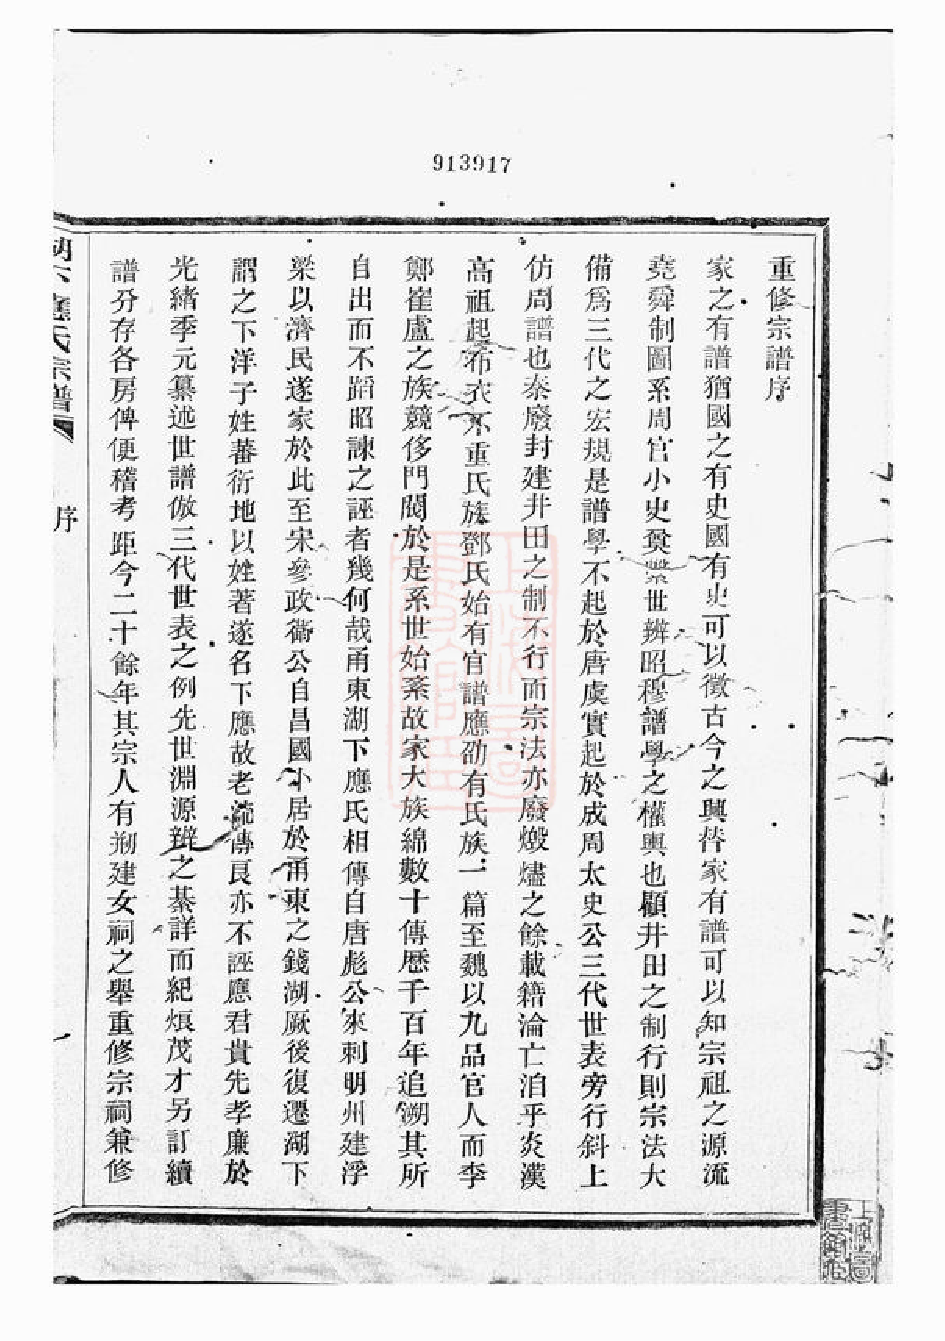 913917
重修宗譜序
家之有譜猶國之有史國有史可以徵古今之興替家有譜可以知宗祖之源流
堯舜制圖系周官小史奠繫世辨昭穆譜學之權輿也顧井田之制行則宗法大
備爲三代之宏規是譜學不起於唐虞實起於成周太史公三代世表旁行斜上
仿周譜也泰廢封建井田之制不行而宗法亦廢燬燼之餘載籍淪亡洎乎炎漢
高祖起布衣不重氏族鄧氏始有官譜應劭有氏族一篇至魏以九品官人而李
鄭崔盧之族競侈門閥於是系世始紊故家大族綿數十傳歷千百年追溯其所
自出而不蹈昭諫之誣者幾何哉甬東湖下應氏相傳自唐彪公來刺明州建浮
梁以濟民遂家於此至宋參政㒜公自昌國小居於甬東之錢湖厥後復遷湖下
謂之下洋子姓蕃衍地以姓著遂名下應故老流傳良亦不誣應君貴先孝廉於
光緒季元纂述世譜倣三代世表之例先世淵源辨之綦詳而紀烺茂才另訂續
譜分存各房俾便稽考距今二十餘年其宗人有剏建女祠之舉重修宗祠兼修
下應氏宗譜
序